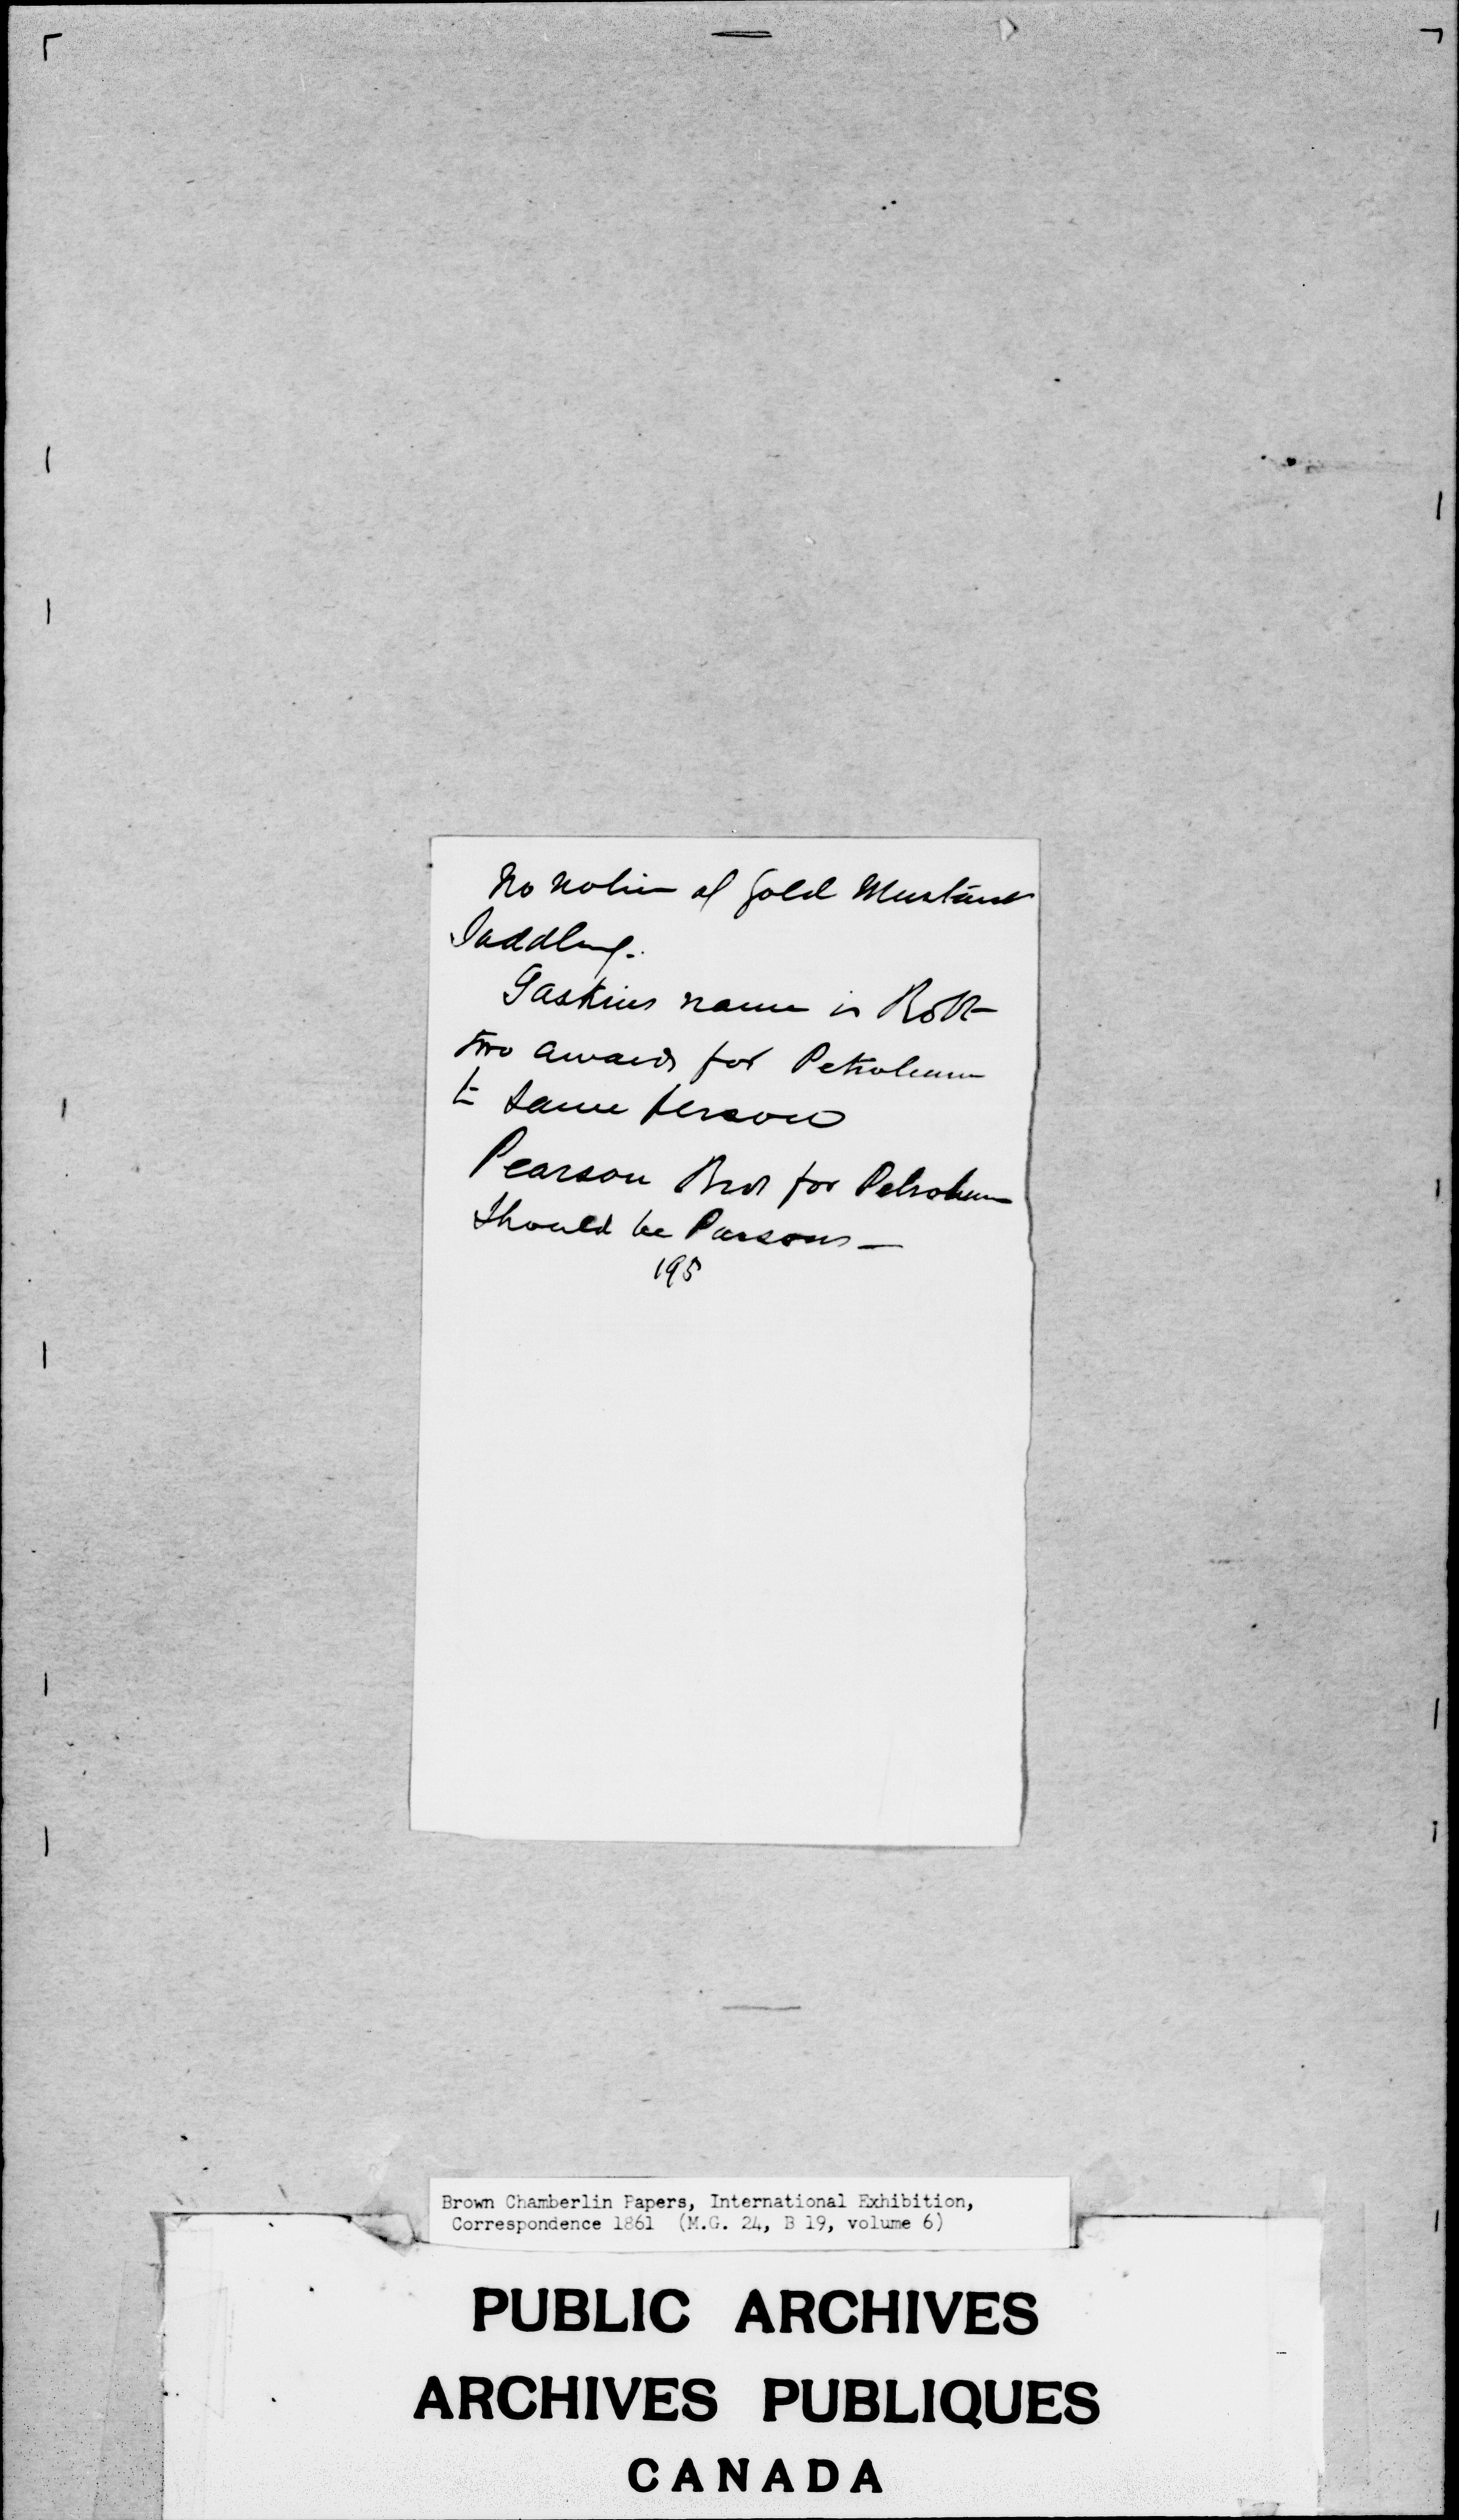 No notice of Gold Mustard
Saddling.
Gaskins name is Robt
two awards for Petroleum
to same person
Pearson Bros for Petroleum
Should be Parsons —
195
Brown Chamberlin Papers, International Exhibition,
Correspondence 1861 (M.G. 24, B 19, volume 6)
PUBLIC ARCHIVES
ARCHIVES PUBLIQUES
CANADA